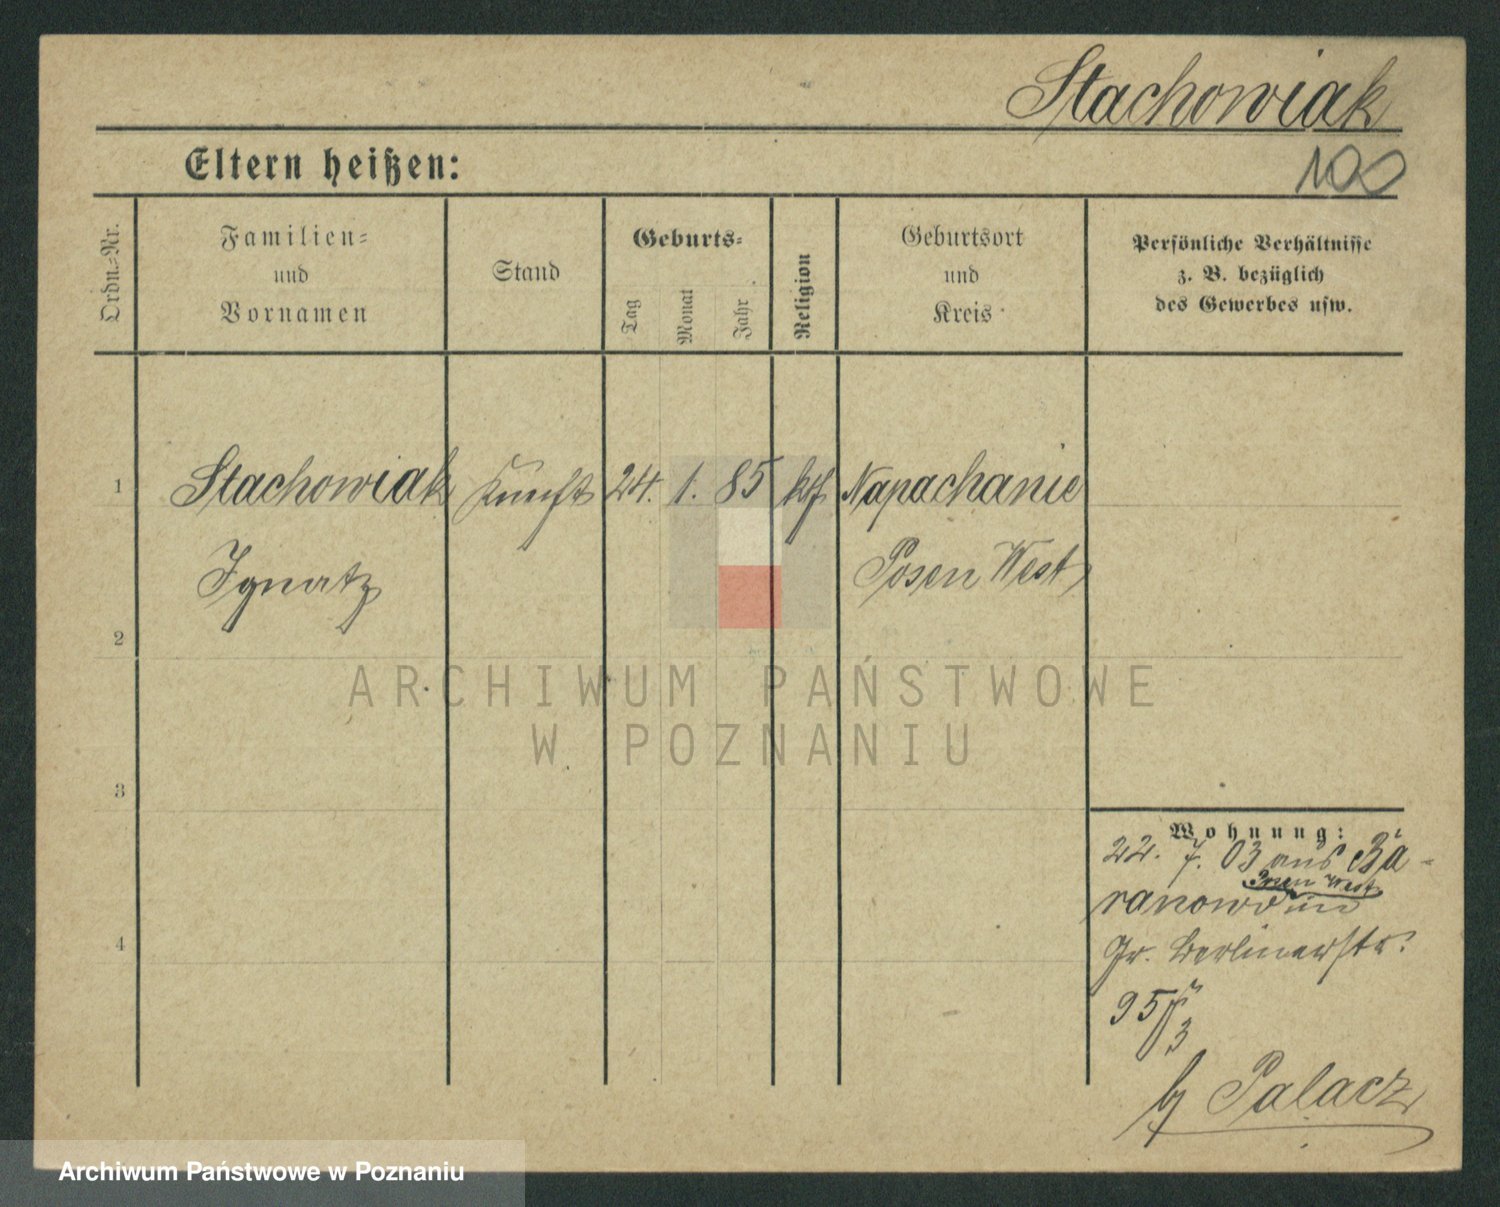 Stachowiak
Eltern heißen:
100
Ordn.-Nr.
Familien-
und
Vornamen
Stand
Geburts-
Tag
Monat
Jahr
Religion
Geburtsort
und
Kreis
Persönliche Verhältnisse
z. B. bezüglich
des Gewerbes usw.
1
Stachowiak Knecht 24. 1. 85 kth Napachanie
Ignatz Posen West
2
ARCHIWUM PAŃSTWOWE
W POZNANIU
3
Wohnung:
22. 7. 03 aus Ba-
Posen West
ranowo in
4
Gr. Berlinerstr.
95/3
b/ Palacz
Archiwum Państwowe w Poznaniu